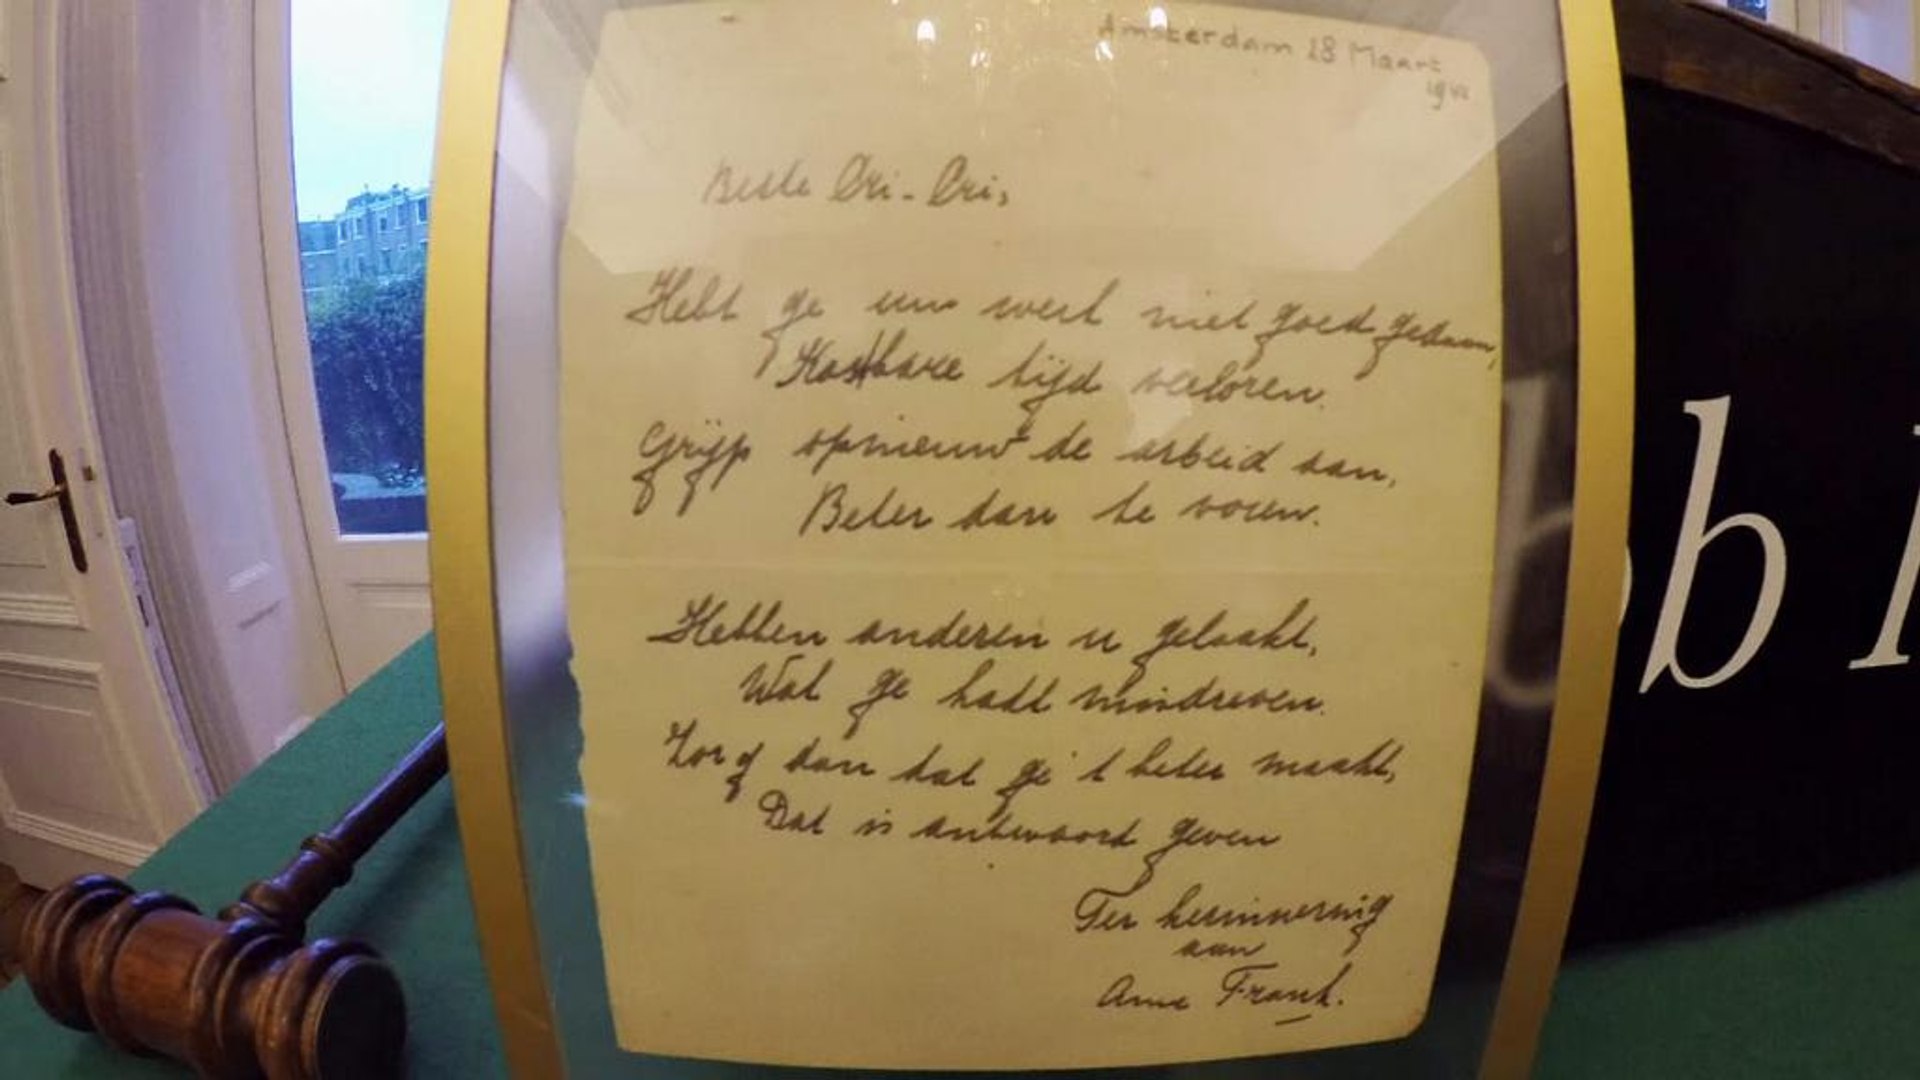 Amsterdam 28 Maart
1942
Beste Cri-Cri,
Hebt ge uw werk niet goed gedaan,
Kostbare tijd verloren.
Grijp opnieuw de arbeid aan,
Beter dan te voren.
Hebben anderen u gelaakt,
Wat ge hadt misdreven.
Zorg dan dat ge 't beter maakt,
Dat is antwoord geven
Ter herinnering
aan
Anne Frank.
b